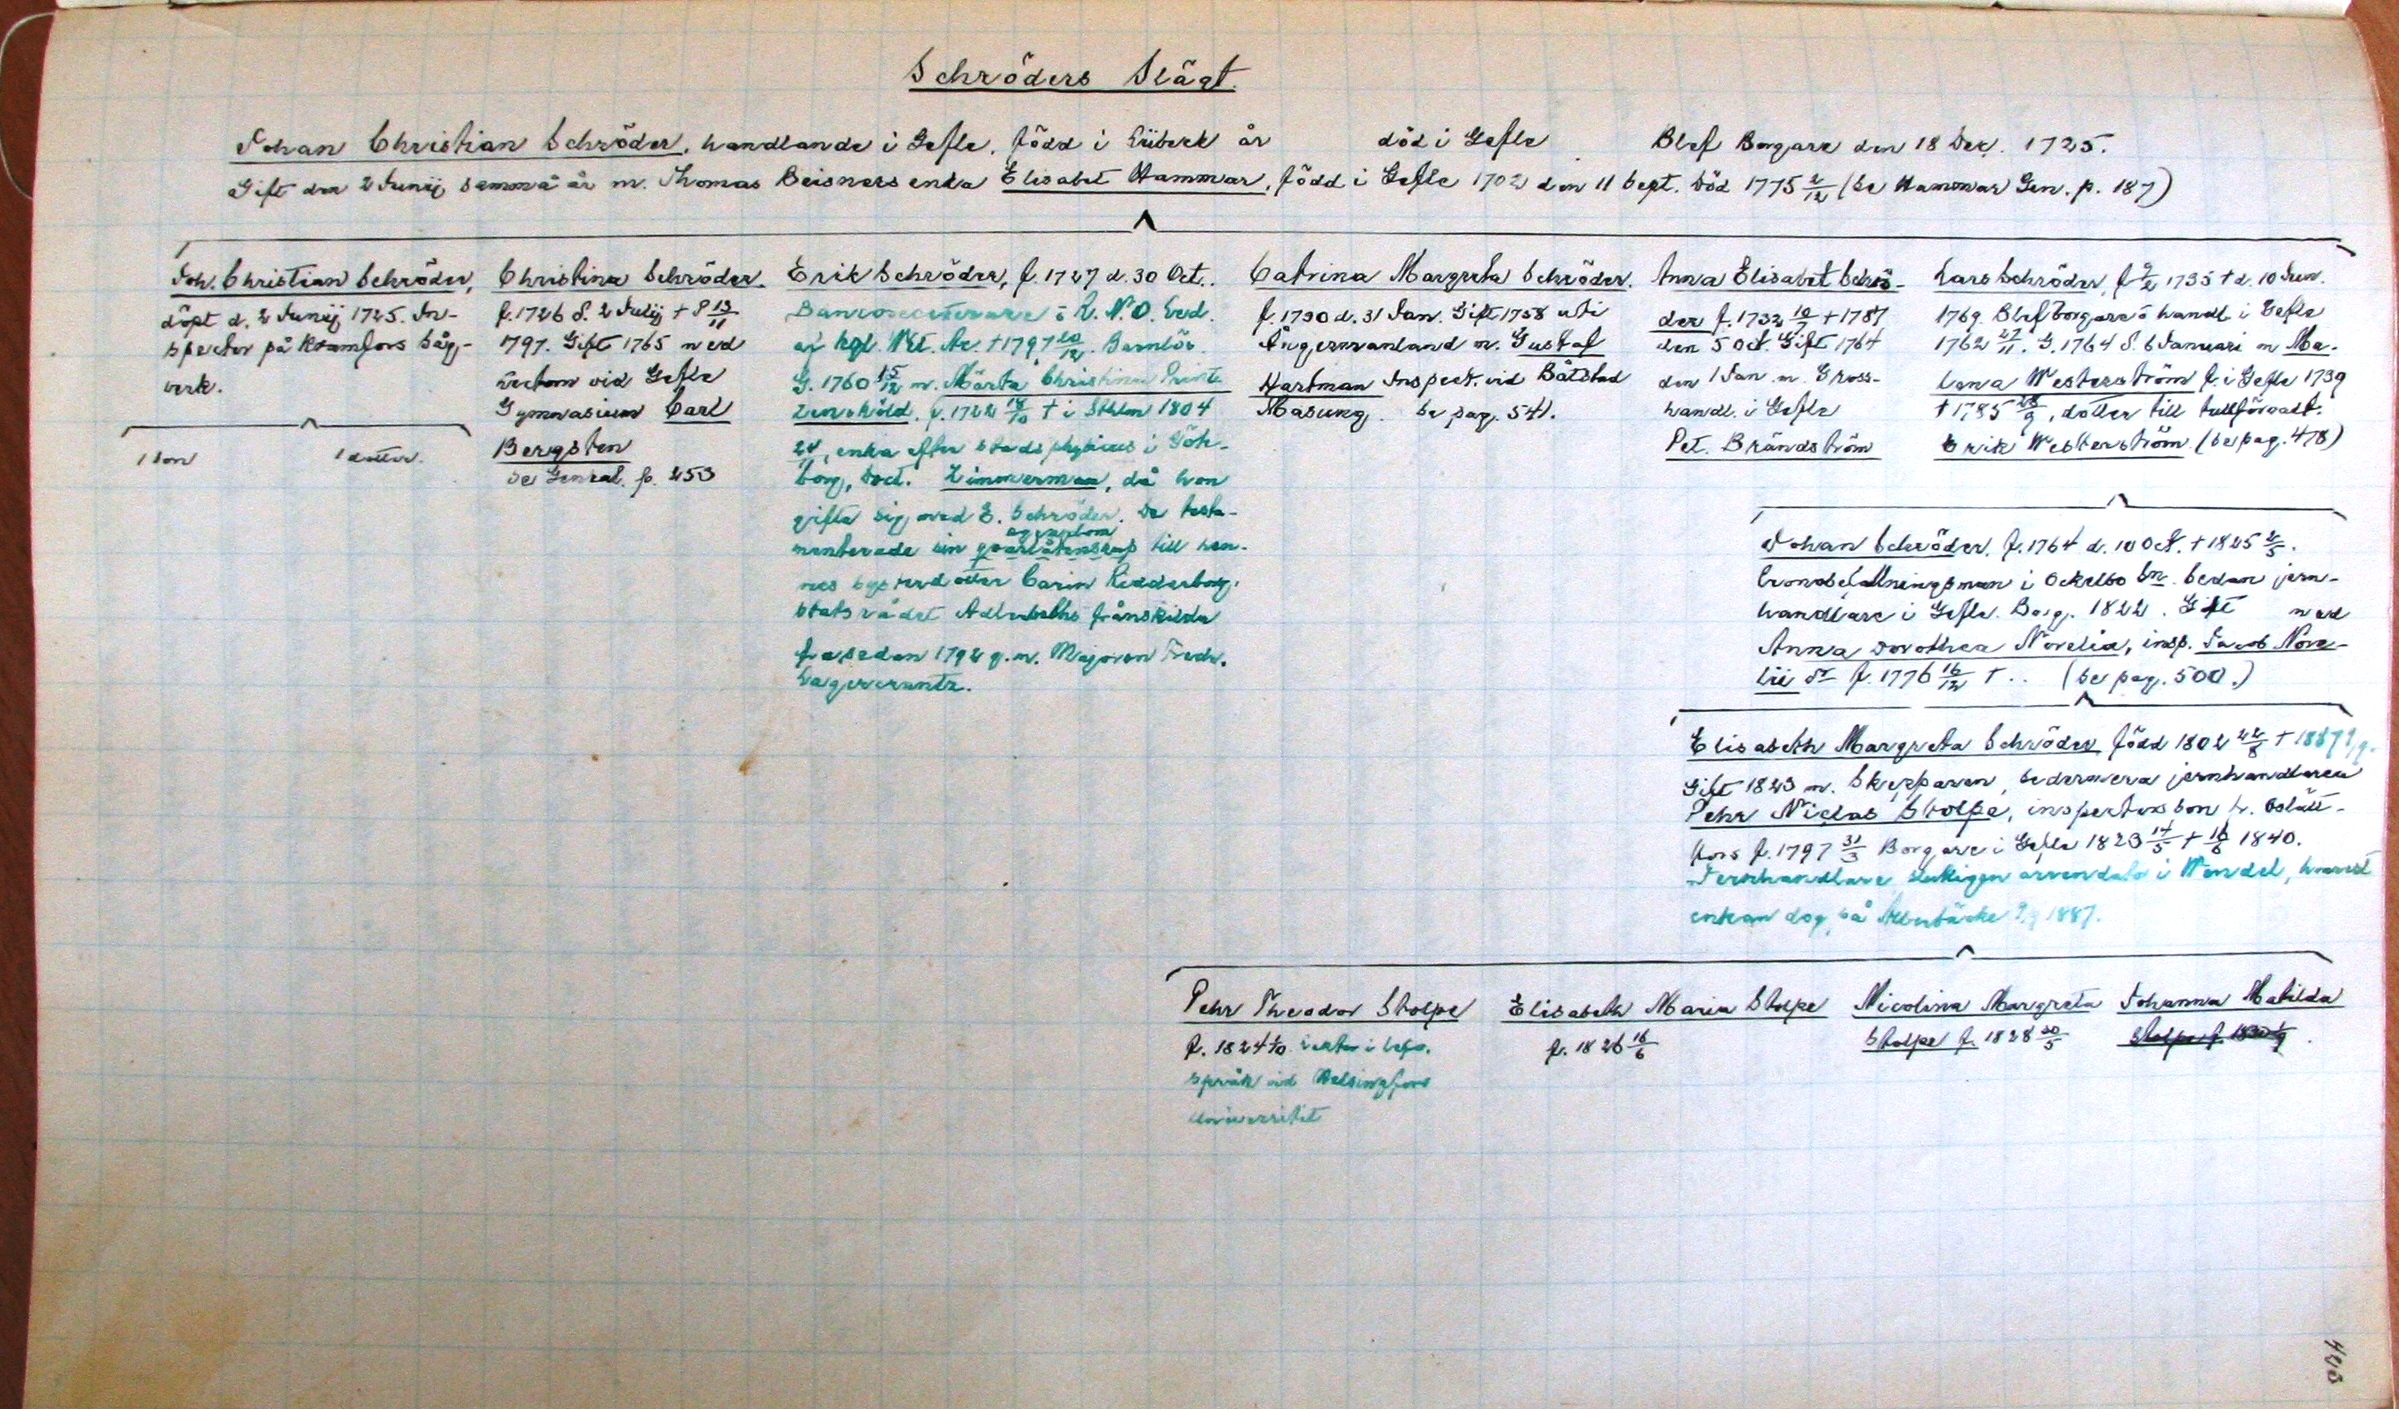 Schröders Slägt.
Johan Christian Schröder, handlande i Gefle, född i Lübeck år död i Gefle Blef Borgare den 18 Dec. 1725.
Gift den 2 Junij samma år m. Thomas Beisners enka Elisabet Hammar, född i Gefle 1702 den 11 Sept. död 1775 2/12 (se Hammar Gen. p. 187)
Joh. Christian Schröder,
döpt d. 2 Junij 1725. In-
spector på Kramfors såg-
verk.
1 son 1 dotter.
Christina Schröder.
f. 1726 d. 2 Julij + d 13/11
1797. Gift 1765 med
Lectorn vid Gefle
Gymnasium Carl
Bergsten
se Geneal. p. 253
Erik Schröder, f. 1727 d. 30 Oct.
Bancosecreterare i R. N. O. Led.
af kgl. Vet. Ac. +1797 20/12. Barnlös.
G. 1760 15/12 m. Märta Christina
f. 1722 14/10 + i Sthlm 1804
24/, enka efter stadsphysicus i Göth-
borg, Doct. Zimmerman, då hon
gifte sig med E. Schröder. De testa-
menterade sin egendom qvarlåtenskap till hen-
nes systerdotter Carin Ridderborg,
statsrådet Adlerbeths frånskilda
fru sedan 1792 g. m. Majoren Fredr.
Lagercrantz.
Catrina Margreta Schröder.
f. 1730 d. 31 Jan. Gift 1758 uti
Ångermanland m. Gustaf
Hartman Inspect. vid Båtstad
Masung. se pag. 541.
Anna Elisabet Schrö-
der f. 1732 10/7 +1787
den 5 Oct. Gift 1764
den 1 Jan m. Gross-
handl. i Gefle
Pet. Brändström
Lars Schröder, f 9/2 1735 + d. 10 Jun.
1769. Blef borgare o handl i Gefle
1762 27/11. G. 1764 d. 6 Januari m Ma-
lena Westerström f. i Gefle 1739
+ 1785 28/9, dotter till tullförvalt.
Erik Westerström (se pag. 478)
Johan Schröder, f. 1764 d. 10 Oct. + 1825 2/5.
Cronobefallningsman i Ockelbo Sn. sedan jern-
handlare i Gefle. Borg. 1822. Gift med
Anna Dorothea Norelia, insp. Jacob Nore-
lii dr f. 1776 16/12 + .. (se pag. 500.)
Elisabeth Margreta Schröder, född 1802 22/8 + 1887 9/9.
Gift 1823 m. Skepparen, sedermera jernhandlaren
Pehr Niclas Stolpe, inspectors son fr. Oslätt-
fors f. 1797 31/3 Borgare i Gefle 1823 14/5 + 16/6 1840.
Jernhandlare, slutligen arrendator i Wendel, hvarest
enkan dog på Alberbäcke 9/9 1887.
Pehr Theodor Stolpe
f. 1824 4/10. Lektor i
språk vid Helsingfors
Universitet
Elisabeth Maria Stolpe
f. 1826 16/6
Nicolina Margreta
Stolpe f. 1828 30/5
Johanna Matilda
Stolpe f.
403